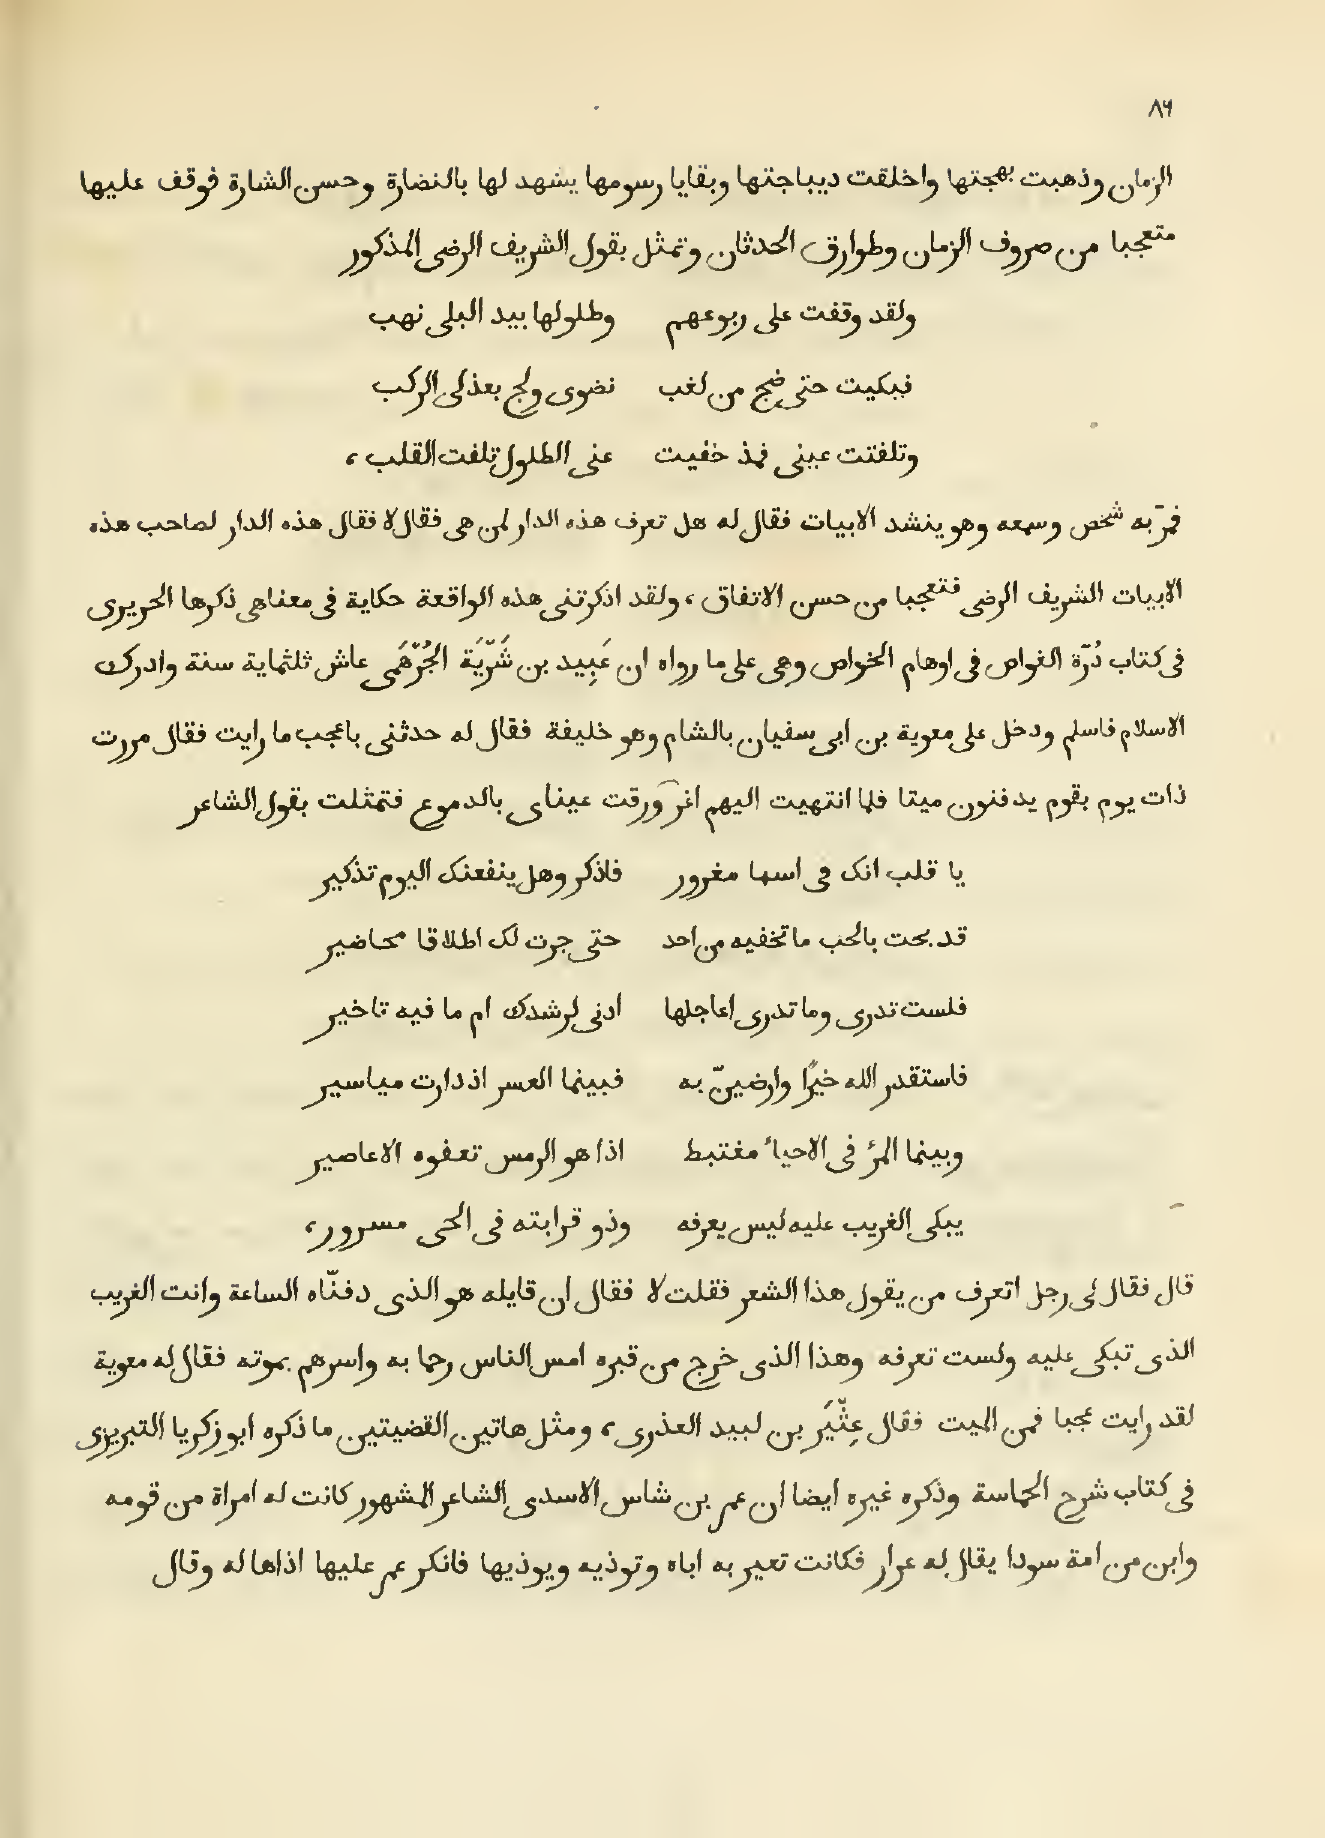 ٨٦
الزمان وذهبت بهجتها واخلقت ديباجتها وبقايا رسومها يشهد لها بالنضارة وحسن الشارة فوقف عليها
متعجبا من صروف الزمان وطوارق الحدثان وتمثل بقول الشريف الرضى المذكور
ولقد وقفت على ربوعهم وطلولها بيد البلى نهب
فبكيت حتى ضج من لغب نضوى ولج بعذلى الركب
وتلفتت عينى فمذ خفيت عنى الطلول تلفت القلب ،
فمرّ به شخص وسمعه وهو ينشد الابيات فقال له هل تعرف هذه الدار لمن هى فقال لا فقال هذه الدار لصاحب هذه
الابيات الشريف الرضى فتعجبا من حسن الاتفاق ، ولقد اذكرتنى هذه الواقعة حكاية فى معناهى ذكرها الحريرى
فى كتاب دُرّة الغواص فى اوهام الخواص وهى على ما رواه ان عَبِيد بن شَرْيَة الجُرْهَمى عاش ثلثماية سنة وادرك
الاسلام فاسلم ودخل على معوية بن ابى سفيان بالشام وهو خليفة فقال له حدثنى باعجب ما رايت فقال مررت
ذات يوم بقوم يدفنون ميتا فلما انتهيت اليهم اغرورقت عيناى بالدموع فتمثلت بقول الشاعر
يا قلب انك فى اسما مغرور فاذكر وهل ينفعنك اليوم تذكير
قد بحت بالحب ما تخفيه من احد حتى جرت لك اطلاقا محاضير
فلست تدرى وما تدرى اعاجلها ادنى لرشدك ام ما فيه تاخير
فاستقدر الله خيرًا وارضينّ به فبينما العسر اذ دارت مياسير
وبينما المرٔ فى الاحياء مغتبط اذا هو الرمس تعفوه الاعاصير
يبكى الغريب عليه ليس يعرفه وذو قرابته فى الحى مسرور ،
قال فقال لى رجل اتعرف من يقول هذا الشعر فقلت لا فقال ان قايله هو الذى دفنّاه الساعة وانت الغريب
الذى تبكى عليه ولست تعرفه وهذا الذى خرج من قبره امس الناس رحما به واسرهم بموته فقال له معوية
لقد رايت عجبا فمن الميت فقال عِثْيَر بن لبيد العذرى ، ومثل هاتين القضيتين ما ذكره ابو زكريا التبريزى
فى كتاب شرح الحماسة وذكره غيره ايضا ان عمر بن شاس الاسدى الشاعر المشهور كانت له امراة من قومه
وابن من امة سودا يقال له عرار فكانت تعير به اباه وتوذيه ويوذيها فانكر عمر عليها اذاها له وقال